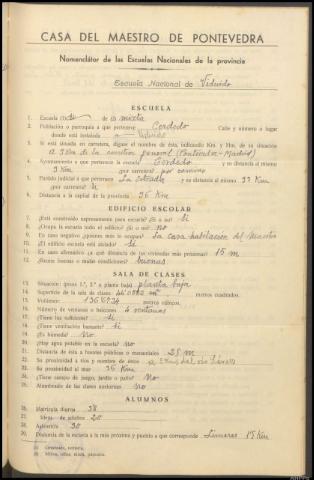 CASA DEL MAESTRO DE PONTEVEDRA
Nomenclátor de las Escuelas Nacionales de la provincia
Escuela Nacional de Vidueido
ESCUELA
1. Escuela de mixta
2. Población o parroquia a que pertenece Cerdedo Calle y número o lugar
donde está instalada
3. Si está situada en carretera, dígase el nombre de ésta, indicando Km. y Hm. de su situación
a 3 Km de la carretera general (Pontevedra-Madrid)
4. Ayuntamiento a que pertenece la escuela Cerdedo y su distancia al mismo
9 Km (por carretera) por camino
5. Partido judicial a que pertenece La Estrada y su distancia al mismo 33 Km
(por carretera) si
6. Distancia a la capital de la provincia 36 Km
EDIFICIO ESCOLAR
7. ¿Está construído expresamente para escuela? ¿Sí o no? si
8. ¿Ocupa la escuela todo el edificio? ¿Sí o no? no
9. En caso negativo ¿quiénes más lo ocupan? La casa habitación del Maestro
10. ¿El edificio escuela está aislado? si
11. En caso afirmativo ¿a qué distancia de las viviendas más próximas? 15 m
12. ¿Reúne buenas o malas condiciones? buenas
SALA DE CLASES
13. Situación: (piso 1.º, 2.º o planta baja) planta baja
14. Superficie de la sala de clases metros cuadrados.
15. Volúmen: metros cúbicos.
16. Número de ventanas o balcones 4 ventanas
17. ¿Tiene luz suficiente? si
18. ¿Tiene ventilación bastante? si
19. ¿Es húmeda? no
20. ¿Hay agua potable en la escuela? no
21. Distancia de ésta a fuentes públicas o manantiales 25 m
22. Su proximidad a ríos y nombre de éstos
23. Su proximidad al mar 36 Km
24. ¿Tiene campo de juego, jardín o patio? no
25. Mandando de las clases nocturnas no
ALUMNOS
26. Matrícula diurna 38
27. Idem. de adultos 20
28. Asistencia 30
29. Distancia de la escuela a la más próxima y pueblo a que corresponde Limeres 1'5 Km